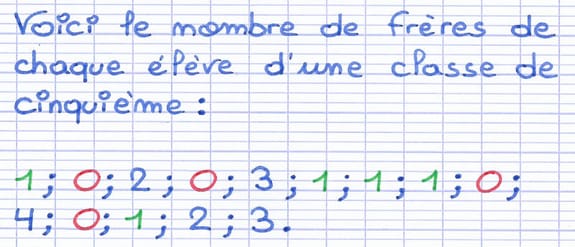 Voici le nombre de frères de
chaque élève d'une classe de
cinquième :
1; 0; 2; 0; 3; 1; 1; 1; 0;
4; 0; 1; 2; 3.